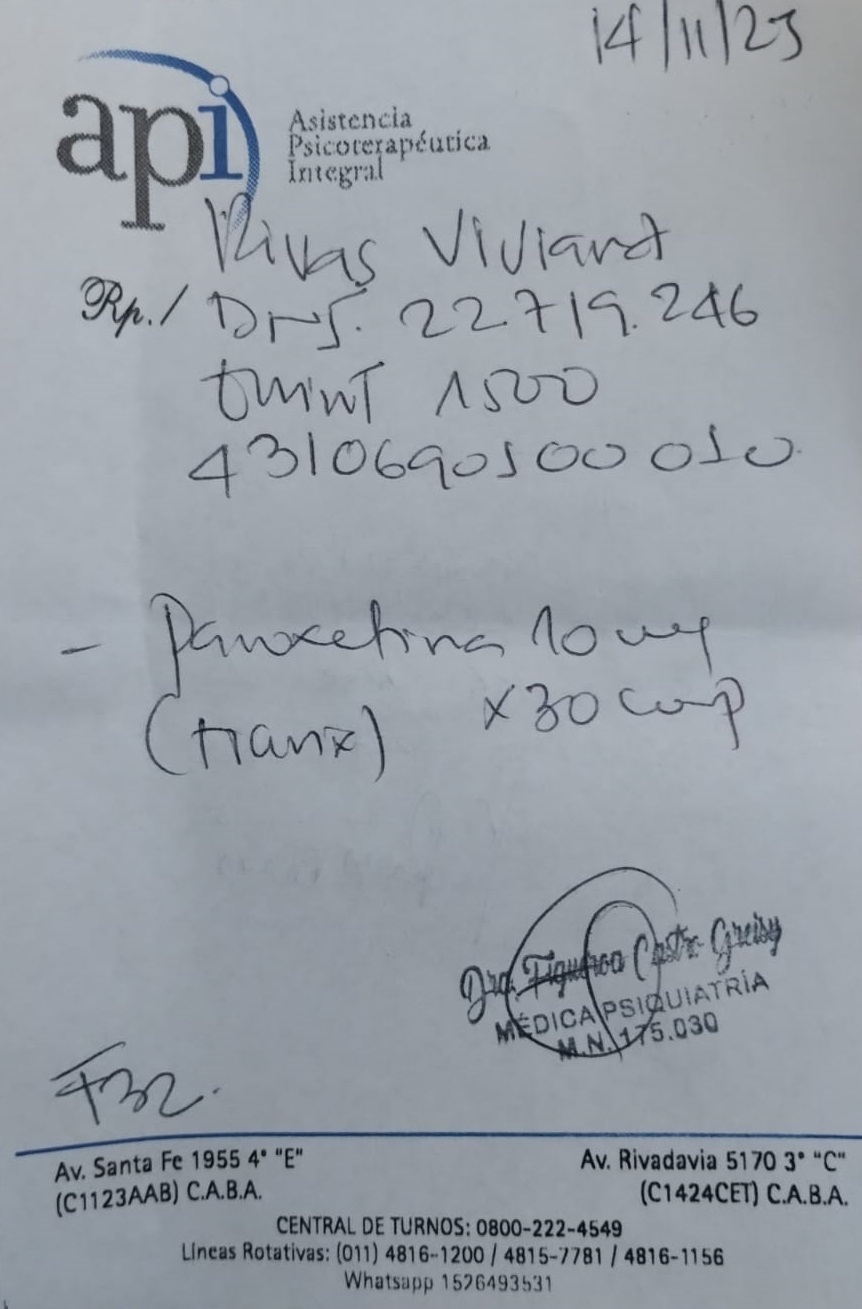 14/11/23
api
Asistencia
Psicoterapéutica
Integral
Rivas Viviana
Rp./ DNI. 22.719.246
OMINT 1500
4310690100010
- Paroxetina 10 mg
x30 comp
(tiarix)
Dra. Figueroa Castro Greisy
MÉDICA PSIQUIATRÍA
M.N. 175.030
F32.
Av. Santa Fe 1955 4° "E"
(C1123AAB) C.A.B.A.
Av. Rivadavia 5170 3° "C"
(C1424CET) C.A.B.A.
CENTRAL DE TURNOS: 0800-222-4549
Líneas Rotativas: (011) 4816-1200 / 4815-7781 / 4816-1156
Whatsapp 1526493531